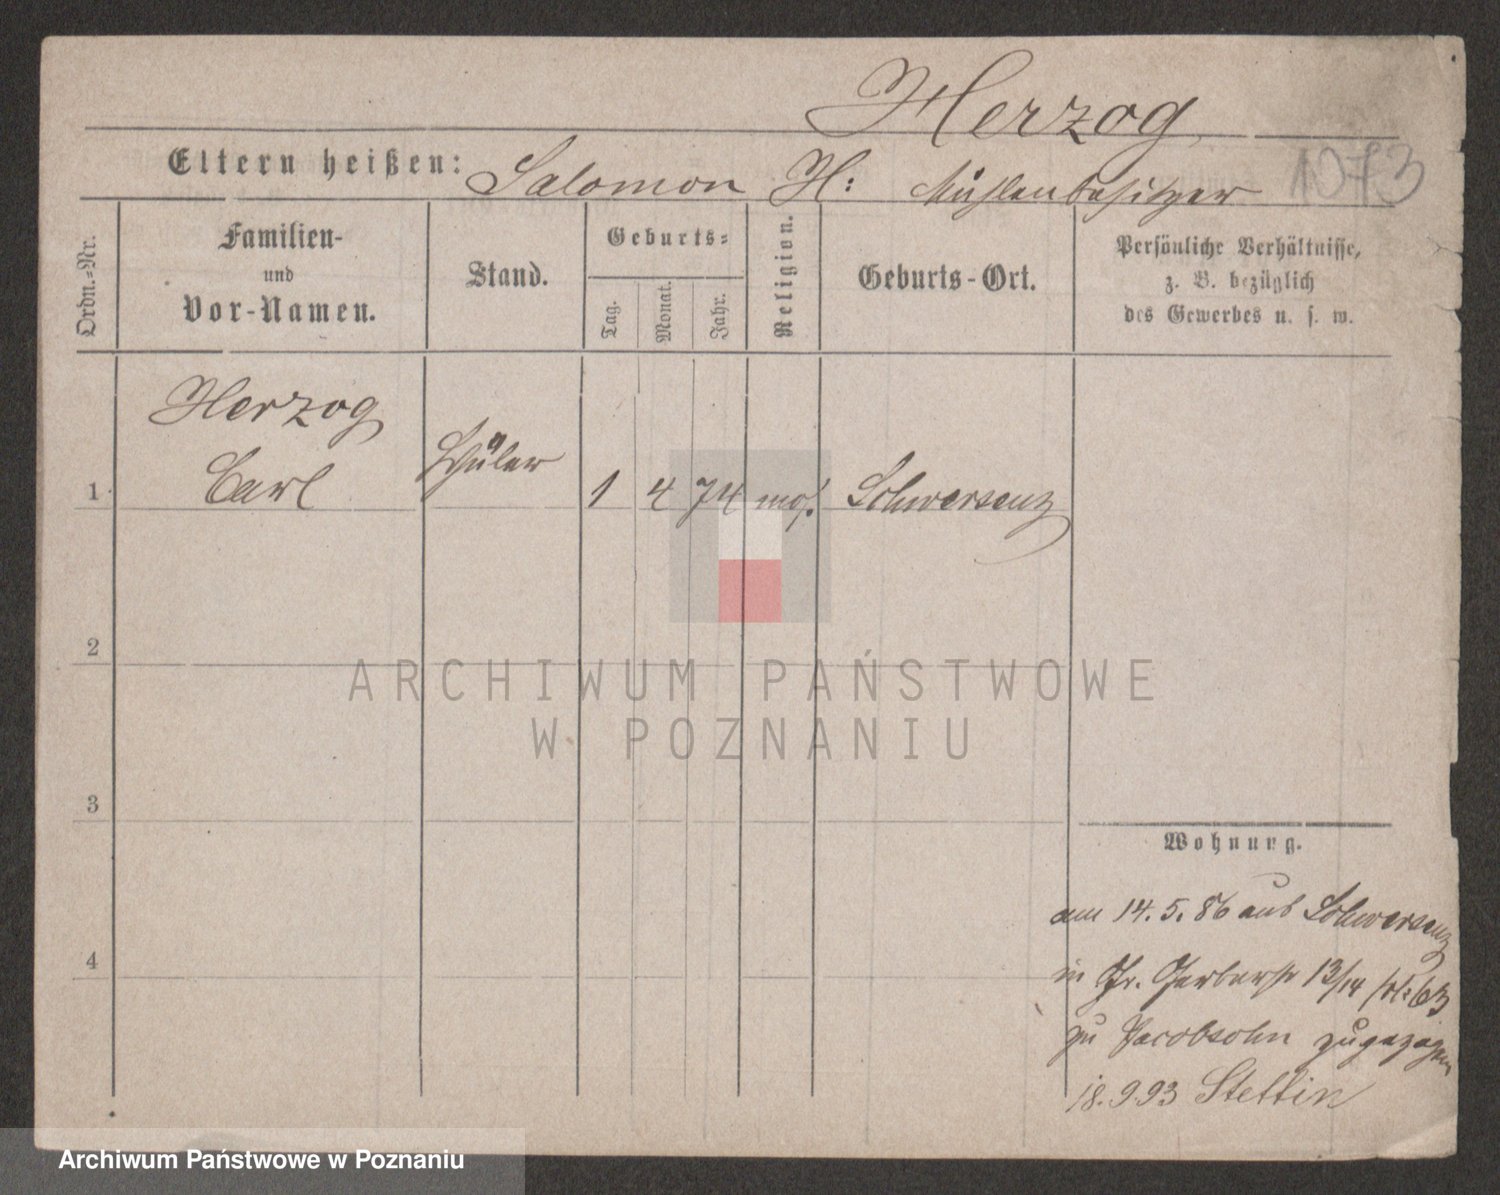 Herzog
1073
Eltern heißen: Salomon H: Mühlenbesitzer
Ordn.-Nr.
Familien-
und
Vor-Namen.
Stand.
Geburts-
Tag.
Monat.
Jahr.
Religion.
Geburts-Ort.
Persönliche Verhältnisse,
z. B. bezüglich
des Gewerbes u. s. w.
Herzog
1 Carl Schüler 1 4 74 mos. Schwersenz
2
ARCHIWUM PAŃSTWOWE
W POZNANIU
3
Wohnung.
am 14. 5. 86 aus Schwersenz
4
in Gr. Gerberstr 13/14
zu Jacobsohn zugezogen
18. 9. 93 Stettin
Archiwum Państwowe w Poznaniu